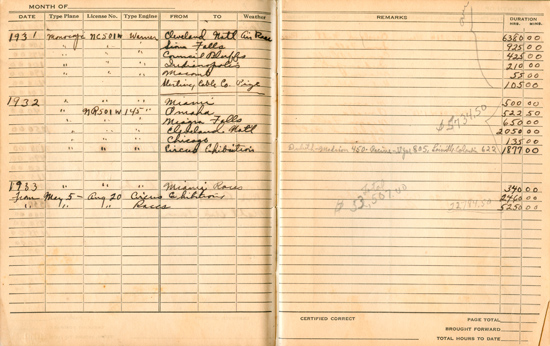 MONTH OF
DATE Type Plane License No. Type Engine FROM TO Weather REMARKS DURATION
HRS. MINS.
1931 Monocoupe NC501W Warner Cleveland Natl Air Races 6380 00
" " " Sioux Falls 925 00
" " " Council Bluffs 425 00
" " " Indianapolis 210 00
" " " Macomb 55 00
Sterling, Cable Co. Prize 105 00
1932 " " " Miami 500 00
" NR501W 145" Omaha 522 50
" " " Falls 650 00
" " " Cleveland Natl 2050 00
" " " Chicago 135 00
" " " Circus Exhibition 450 805 622 1877 00
1933 " " " Miami Races 340 00
From May 5 - Aug 20 Circus Exhibitions Total 2460 00
" " " Races $ 53,507.00 5250 00
CERTIFIED CORRECT PAGE TOTAL
BROUGHT FORWARD
TOTAL HOURS TO DATE